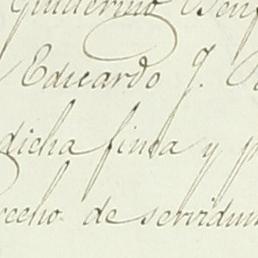 Guillermo Benj
Eduardo J.
dicha finca y p
recho de servidum